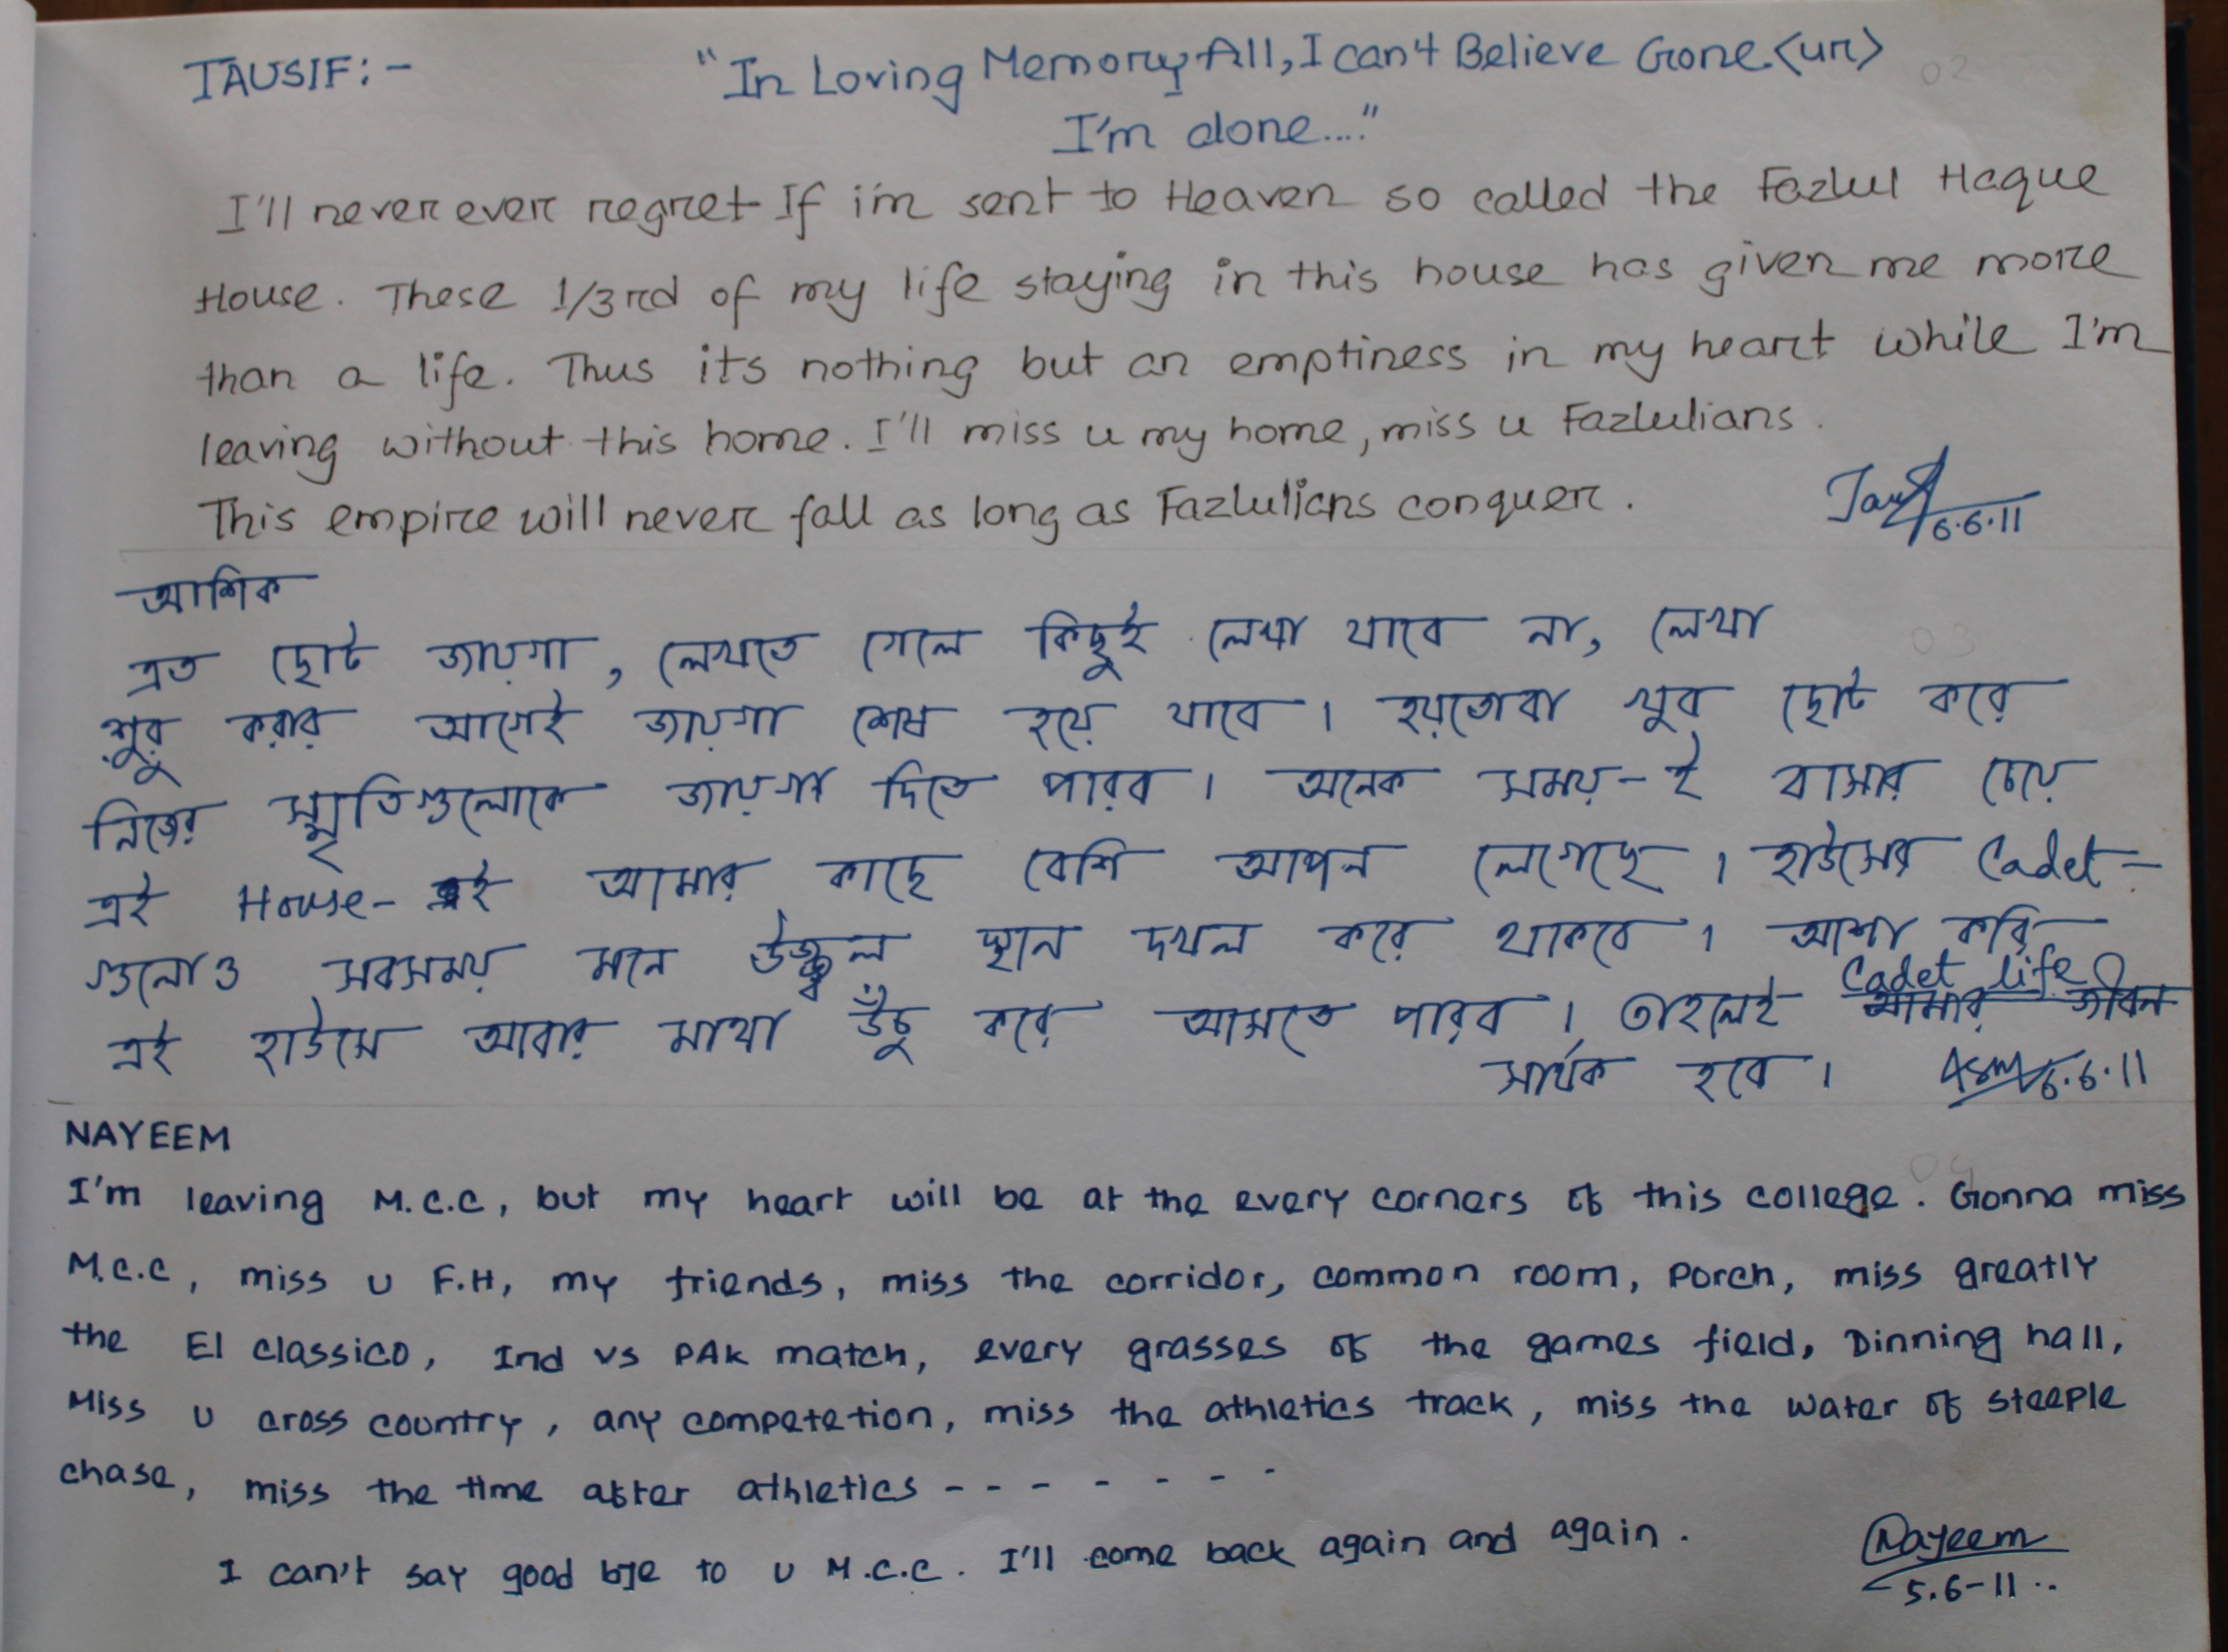 TAUSIF:- "In Loving Memory All, I can't Believe Gone <ur>
I'm done...."
I'll never ever regret If i'm sent to Heaven so called the Fazlul Haque
House. These 1/3rd of my life staying in this house has given me more
than a life. Thus its nothing but an emptiness in my heart while I'm
leaving without this home. I'll miss u my home, miss u Fazlulians.
This empire will never fall as long as Fazlulians conquer.
6.6.11
আশিক
এত ছোট জায়গা, লেখতে গেলে কিছুই লেখা যাবে না, লেখা
শুরু করার আগেই জায়গা শেষ হয়ে যাবে। হয়তোবা খুব ছোট করে
নিজের স্মৃতিগুলোকে জায়গা দিতে পারব। অনেক সময়-ই বাসার চেয়ে
এই House-ই আমার কাছে বেশি আপন লেগেছে। হাউসের Cadet-
গুলোও সবসময় মনে উজ্জ্বল স্থান দখল করে থাকবে। আশা করি
এই হাউসে আবার মাথা উঁচু করে আসতে পারব। তাহলেই Cadet life আমার জীবন
সার্থক হবে। 6.6.11
NAYEEM
I'm leaving M.C.C, but my heart will be at the every corners of this college. Gonna miss
M.C.C, miss u F.H, my friends, miss the corridor, common room, porch, miss greatly
the El classico, Ind vs PAK match, every grasses of the games field, Dinning hall,
Miss u cross country, any competetion, miss the athletics track, miss the water of steeple
chase, miss the time after athletics - - - - - - - -
I can't say good bye to u M.C.C. I'll come back again and again.
Nayeem
5.6-11..